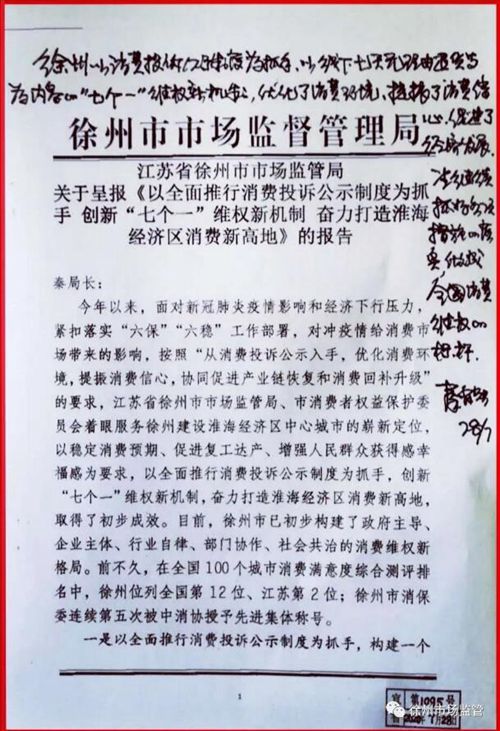 徐州以消费投诉公示制度为抓手，以线下七天无理由退货为
为内容的“七个一”维权新机制，优化了消费环境，提振了消费信
心，促进了
经济发展。
全国消费
维权的
标杆。
28/7
徐州市市场监督管理局
江苏省徐州市市场监管局
关于呈报《以全面推行消费投诉公示制度为抓
手 创新“七个一”维权新机制 奋力打造淮海
经济区消费新高地》的报告
秦局长：
今年以来，面对新冠肺炎疫情影响和经济下行压力，
紧扣落实“六保”“六稳”工作部署，对冲疫情给消费市
场带来的影响，按照“从消费投诉公示入手，优化消费环
境，提振消费信心，协同促进产业链恢复和消费回补升级”
的要求，江苏省徐州市市场监管局、市消费者权益保护委
员会着眼服务徐州建设淮海经济区中心城市的崭新定位，
以稳定消费预期、促进复工达产、增强人民群众获得感幸
福感为要求，以全面推行消费投诉公示制度为抓手，创新
“七个一”维权新机制，奋力打造淮海经济区消费新高地，
取得了初步成效。目前，徐州市已初步构建了政府主导、
企业主体、行业自律、部门协作、社会共治的消费维权新
格局。前不久，在全国100个城市消费满意度综合测评排
名中，徐州位列全国第12位、江苏第2位；徐州市消保
委连续第五次被中消协授予先进集体称号。
一是以全面推行消费投诉公示制度为抓手，构建一个
1
第1095号
2020年7月28日
徐州市场监管